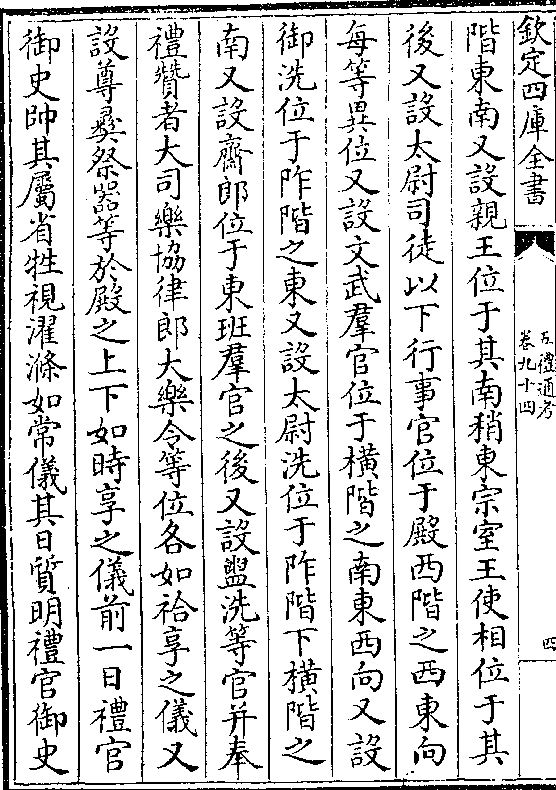 欽定四庫全書
五禮通考
卷九十四
四
階東南又設親王位于其南稍東宗室王使相位于其
後又設太尉司徒以下行事官位于殿西階之西東向
每等異位又設文武羣官位于橫階之南東西向又設
御洗位于阼階之東又設太尉洗位于阼階下橫階之
南又設齋郎位于東班羣官之後又設盥洗等官并奉
禮贊者大司樂協律郎大樂令等位各如祫享之儀又
設尊彛祭器等於殿之上下如時享之儀前一日禮官
御史帥其屬省牲視濯滌如常儀其日質明禮官御史